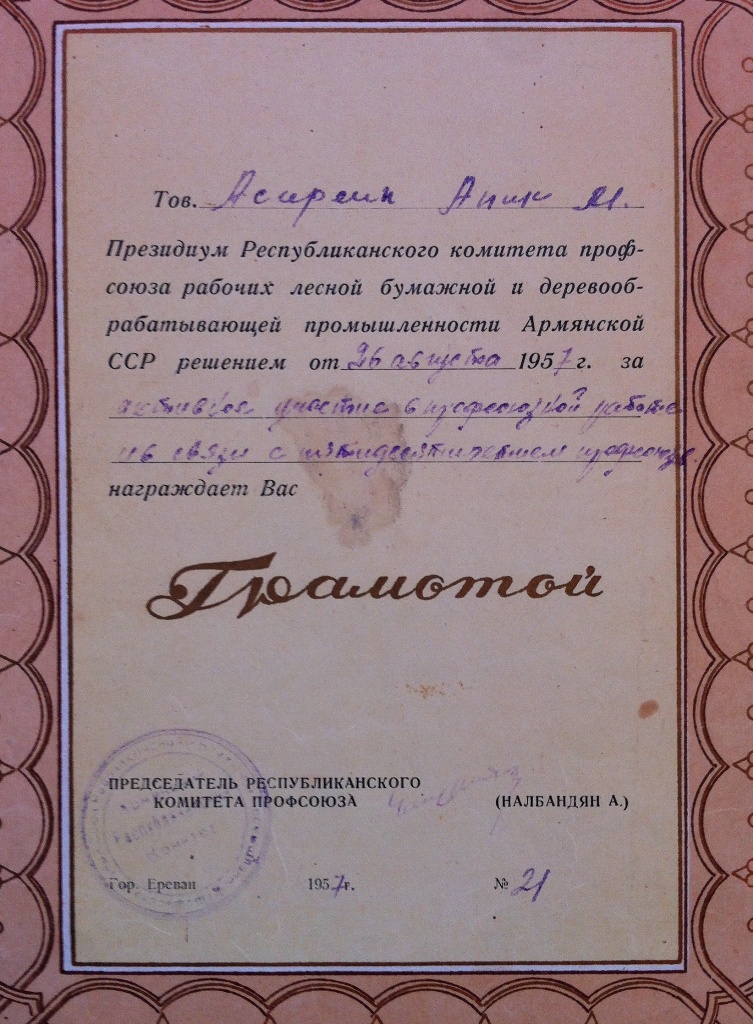 Тов. Асиреин Аник М.
Президиум Республиканского комитета проф-
союза рабочих лесной бумажной и деревооб-
рабатывающей промышленности Армянской
ССР решением от 26 августа 1957 г. за
активное участие в профсоюзной работе
и в связи с пятидесятилетием профсоюза.
награждает Вас
Грамотой
ПРЕДСЕДАТЕЛЬ РЕСПУБЛИКАНСКОГО
КОМИТЕТА ПРОФСОЮЗА
(НАЛБАНДЯН А.)
Гор. Ереван 1957г. № 21